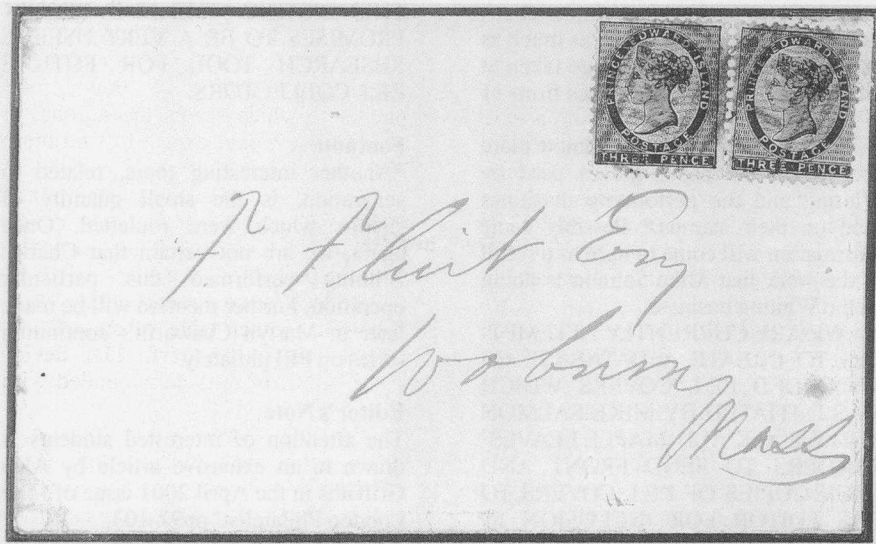 PRINCE EDWARD ISLAND
POSTAGE
THREE PENCE
PRINCE EDWARD ISLAND
POSTAGE
THREE PENCE
F Flint Esq
Woburn
Mass